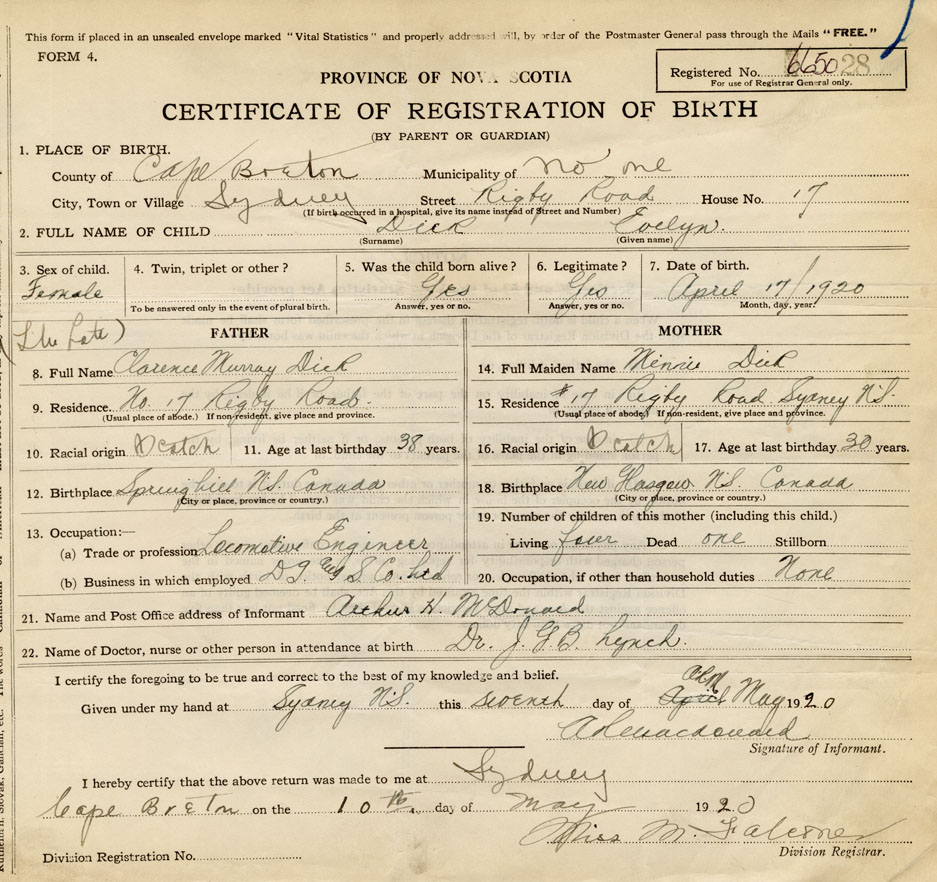 This form if placed in an unsealed envelope marked "Vital Statistics" and properly addressed will, by order of the Postmaster General pass through the Mails "FREE."
FORM 4.
Registered No. 6650 28
For use of Registrar General only.
PROVINCE OF NOVA SCOTIA
CERTIFICATE OF REGISTRATION OF BIRTH
(BY PARENT OR GUARDIAN)
1. PLACE OF BIRTH.
County of Cape Breton Municipality of No one
City, Town or Village Sydney Street Rigby Road House No. 17
(If birth occurred in a hospital, give its name instead of Street and Number)
2. FULL NAME OF CHILD Dick Evelyn.
(Surname) (Given name)
3. Sex of child. 4. Twin, triplet or other? 5. Was the child born alive? 6. Legitimate? 7. Date of birth.
Female Yes Yes April 17/1920
To be answered only in the event of plural birth. Answer, yes or no. Answer, yes or no. Month, day, year.
(The Late)
FATHER MOTHER
8. Full Name Clarence Murray Dick 14. Full Maiden Name Minnie Dick
9. Residence. No. 17 Rigby Road. 15. Residence #17 Rigby Road Sydney N.S.
(Usual place of abode.) If non-resident, give place and province. (Usual place of abode.) If non-resident, give place and province.
10. Racial origin Scotch 11. Age at last birthday 38 years. 16. Racial origin Scotch 17. Age at last birthday 30 years.
12. Birthplace Springhill N.S. Canada 18. Birthplace New Glasgow N.S. Canada
(City or place, province or country.) (City or place, province or country.)
13. Occupation:— 19. Number of children of this mother (including this child.)
(a) Trade or profession Locomotive Engineer Living four Dead one Stillborn
(b) Business in which employed S. Co. Ltd 20. Occupation, if other than household duties None
21. Name and Post Office address of Informant Arthur H. McDonald
22. Name of Doctor, nurse or other person in attendance at birth Dr. J. G. B. Lynch.
I certify the foregoing to be true and correct to the best of my knowledge and belief.
Given under my hand at Sydney N.S. this seventh day of April May 1920
Signature of Informant.
I hereby certify that the above return was made to me at Sydney
Cape Breton on the 10th day of May 1920
Miss M. Falconer
Division Registration No. Division Registrar.